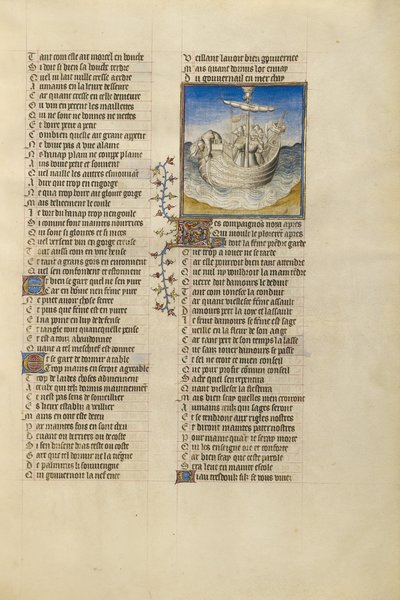 Tant com elle ait morcel en bouche
Si doit si bien sa bouche terdre
Quel ni lait nulle cresse aerdre
Au mains en la levre desseure
Car quant cresse en celle demeure
Ou vin en perent les maillettes
Qui ne sont ne bonnes ne nettes
Et boive petit a petit
Combien quelle ait grant appetit
Ne boive pas a une alaine
Ne hanap plain ne coupe plaine
Ains boive petit et souvent
Quel naille les autres esmouvant
A dire que trop en engorge
Ne que trop boive a gloute gorge
Mais delieement le coule
Le bort du hanap trop nengoule
Si comme font maintes nourrices
Qui sont si gloutes et si nices
Quel versent vin en gorge creuse
Tout aussi com en une heuse
Et tant a grans gors en entonnent
Quel sen confondent et estonnent
Et bien se gart quel ne sen yvre
Car en homme nen feme yvre
Ne puet avoir chose secree
Et puis que feme est enyvree
Il na point en luy de defense
Et iangle tout quanquelle pense
Et est a tous abandonnee
Quant a tel meschief est donnee
Et se gart de dormir a table
Trop mains en seroit agreable
Trop de laides choses adviennent
A ceulx qui telz dormirs maintiennent
Ce nest pas sens de sommeillier
Es lieux establiz a veillier
Maint en ont este deceu
Par maintes fois en sont cheu
Devant ou derriere ou de coste
Si sen brisent bras teste ou coste
Gart que tel dormir ne la tiegne
De palinurus li souviengne
Qui gouvernoit la nef enee
Veillant lavoit bien gouvernee
Mais quant dormir lot envay
Du gouvernail en mer chay
Des compaignons noia apres
Qui moult le plorerent apres
Si doit la feme prendre garde
Que trop a iouer ne se tarde
Car elle pourroit bien tant attendre
Que nul ny vouldroit la main tendre
Querre doit damours le deduit
Tant com ionesce la conduit
Car quant viellesce feme assault
Damours pert la ioie et lassault
Le fruit damours se feme est sage
Cueille en la fleur de son aage
Car tant pert de son temps la lasse
Que sans iouer damours se passe
Et sel ne croit ce mien conseil
Que pour proffit commun conseil
Sache quel sen repentira
Quant viellesce la flestrira
Mais bien scay quelles men croiront
Au mains ceulx qui sages seront
Et se tendront aux rigles nostres
Et diront maintes paternostres
Pour mame quant ie seray morte
Qui les enseigne ore et conforte
Car bien scay que ceste parole
Sera leue en mainte escole
Biau tresdoulx filz se vous vivez